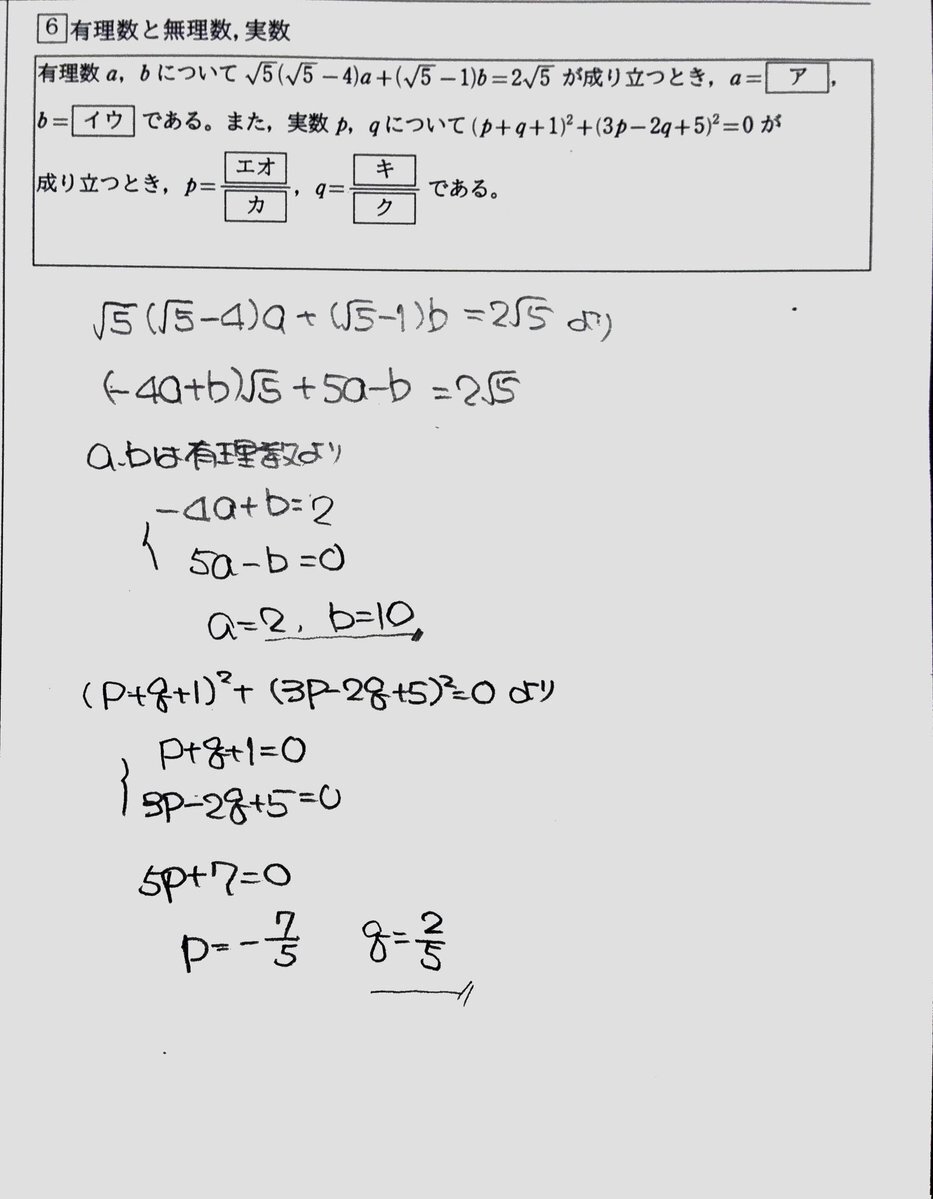 6 有理数と無理数, 実数
有理数 a, b について √5(√5−4)a+(√5−1)b=2√5 が成り立つとき, a= ア ,
b= イウ である。また, 実数 p, q について (p+q+1)²+(3p−2q+5)²=0 が
成り立つとき, p= エオ/カ , q= キ/ク である。
√5(√5−4)a+(√5−1)b=2√5 より
(−4a+b)√5+5a−b=2√5
a.bは有理数より
−4a+b=2
5a−b=0
a=2, b=10
(p+q+1)²+(3p−2q+5)²=0 より
p+q+1=0
3p−2q+5=0
5p+7=0
p=−7/5 q=2/5